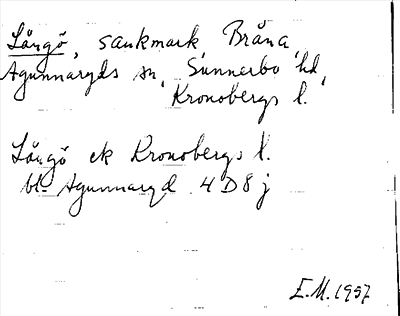 Långö, sankmark, Bråna,
Agunnaryds sn, Sunnerbo hd,
Kronobergs l.
Långö ek Kronobergs l.
bl. Agunnaryd 4D8j
E.M. 1957